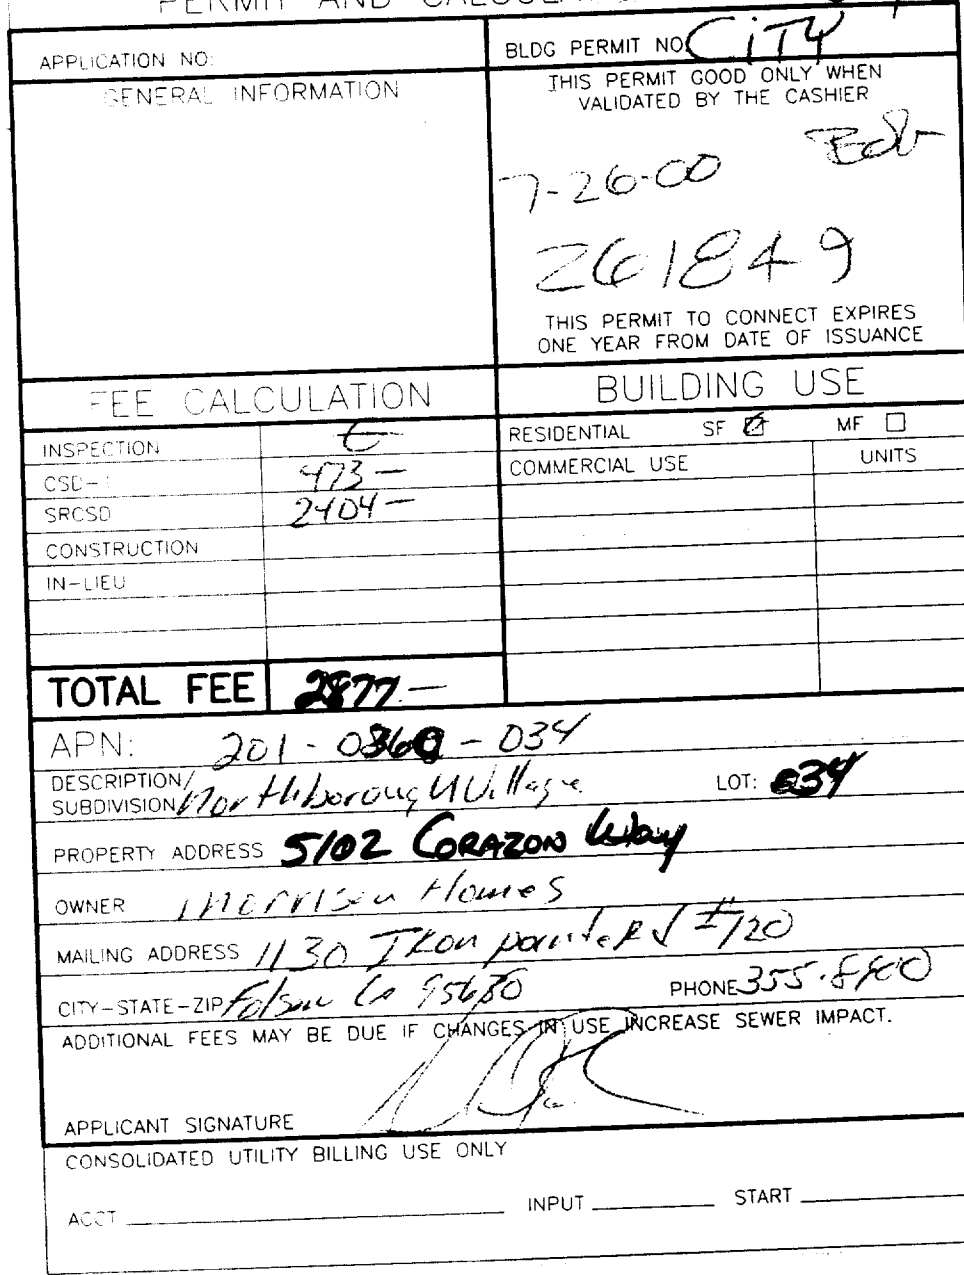 PERMIT AND
APPLICATION NO:
BLDG PERMIT NO. CiTY
GENERAL INFORMATION
THIS PERMIT GOOD ONLY WHEN
VALIDATED BY THE CASHIER
7-26-00
261849
THIS PERMIT TO CONNECT EXPIRES
ONE YEAR FROM DATE OF ISSUANCE
FEE CALCULATION
INSPECTION
CSD-1 473 —
SRCSD 2404 —
CONSTRUCTION
IN-LIEU
TOTAL FEE 2877.—
BUILDING USE
RESIDENTIAL SF MF
COMMERCIAL USE UNITS
APN: 201-0360-034
DESCRIPTION/
SUBDIVISION Northborough Village LOT: 034
PROPERTY ADDRESS 5102 CORAZON Way
OWNER Morrison Homes
MAILING ADDRESS 1130 Iron point Rd #120
CITY-STATE-ZIP Folsom Ca 95630 PHONE 355-8900
ADDITIONAL FEES MAY BE DUE IF CHANGES IN USE INCREASE SEWER IMPACT.
APPLICANT SIGNATURE
CONSOLIDATED UTILITY BILLING USE ONLY
ACCT INPUT START